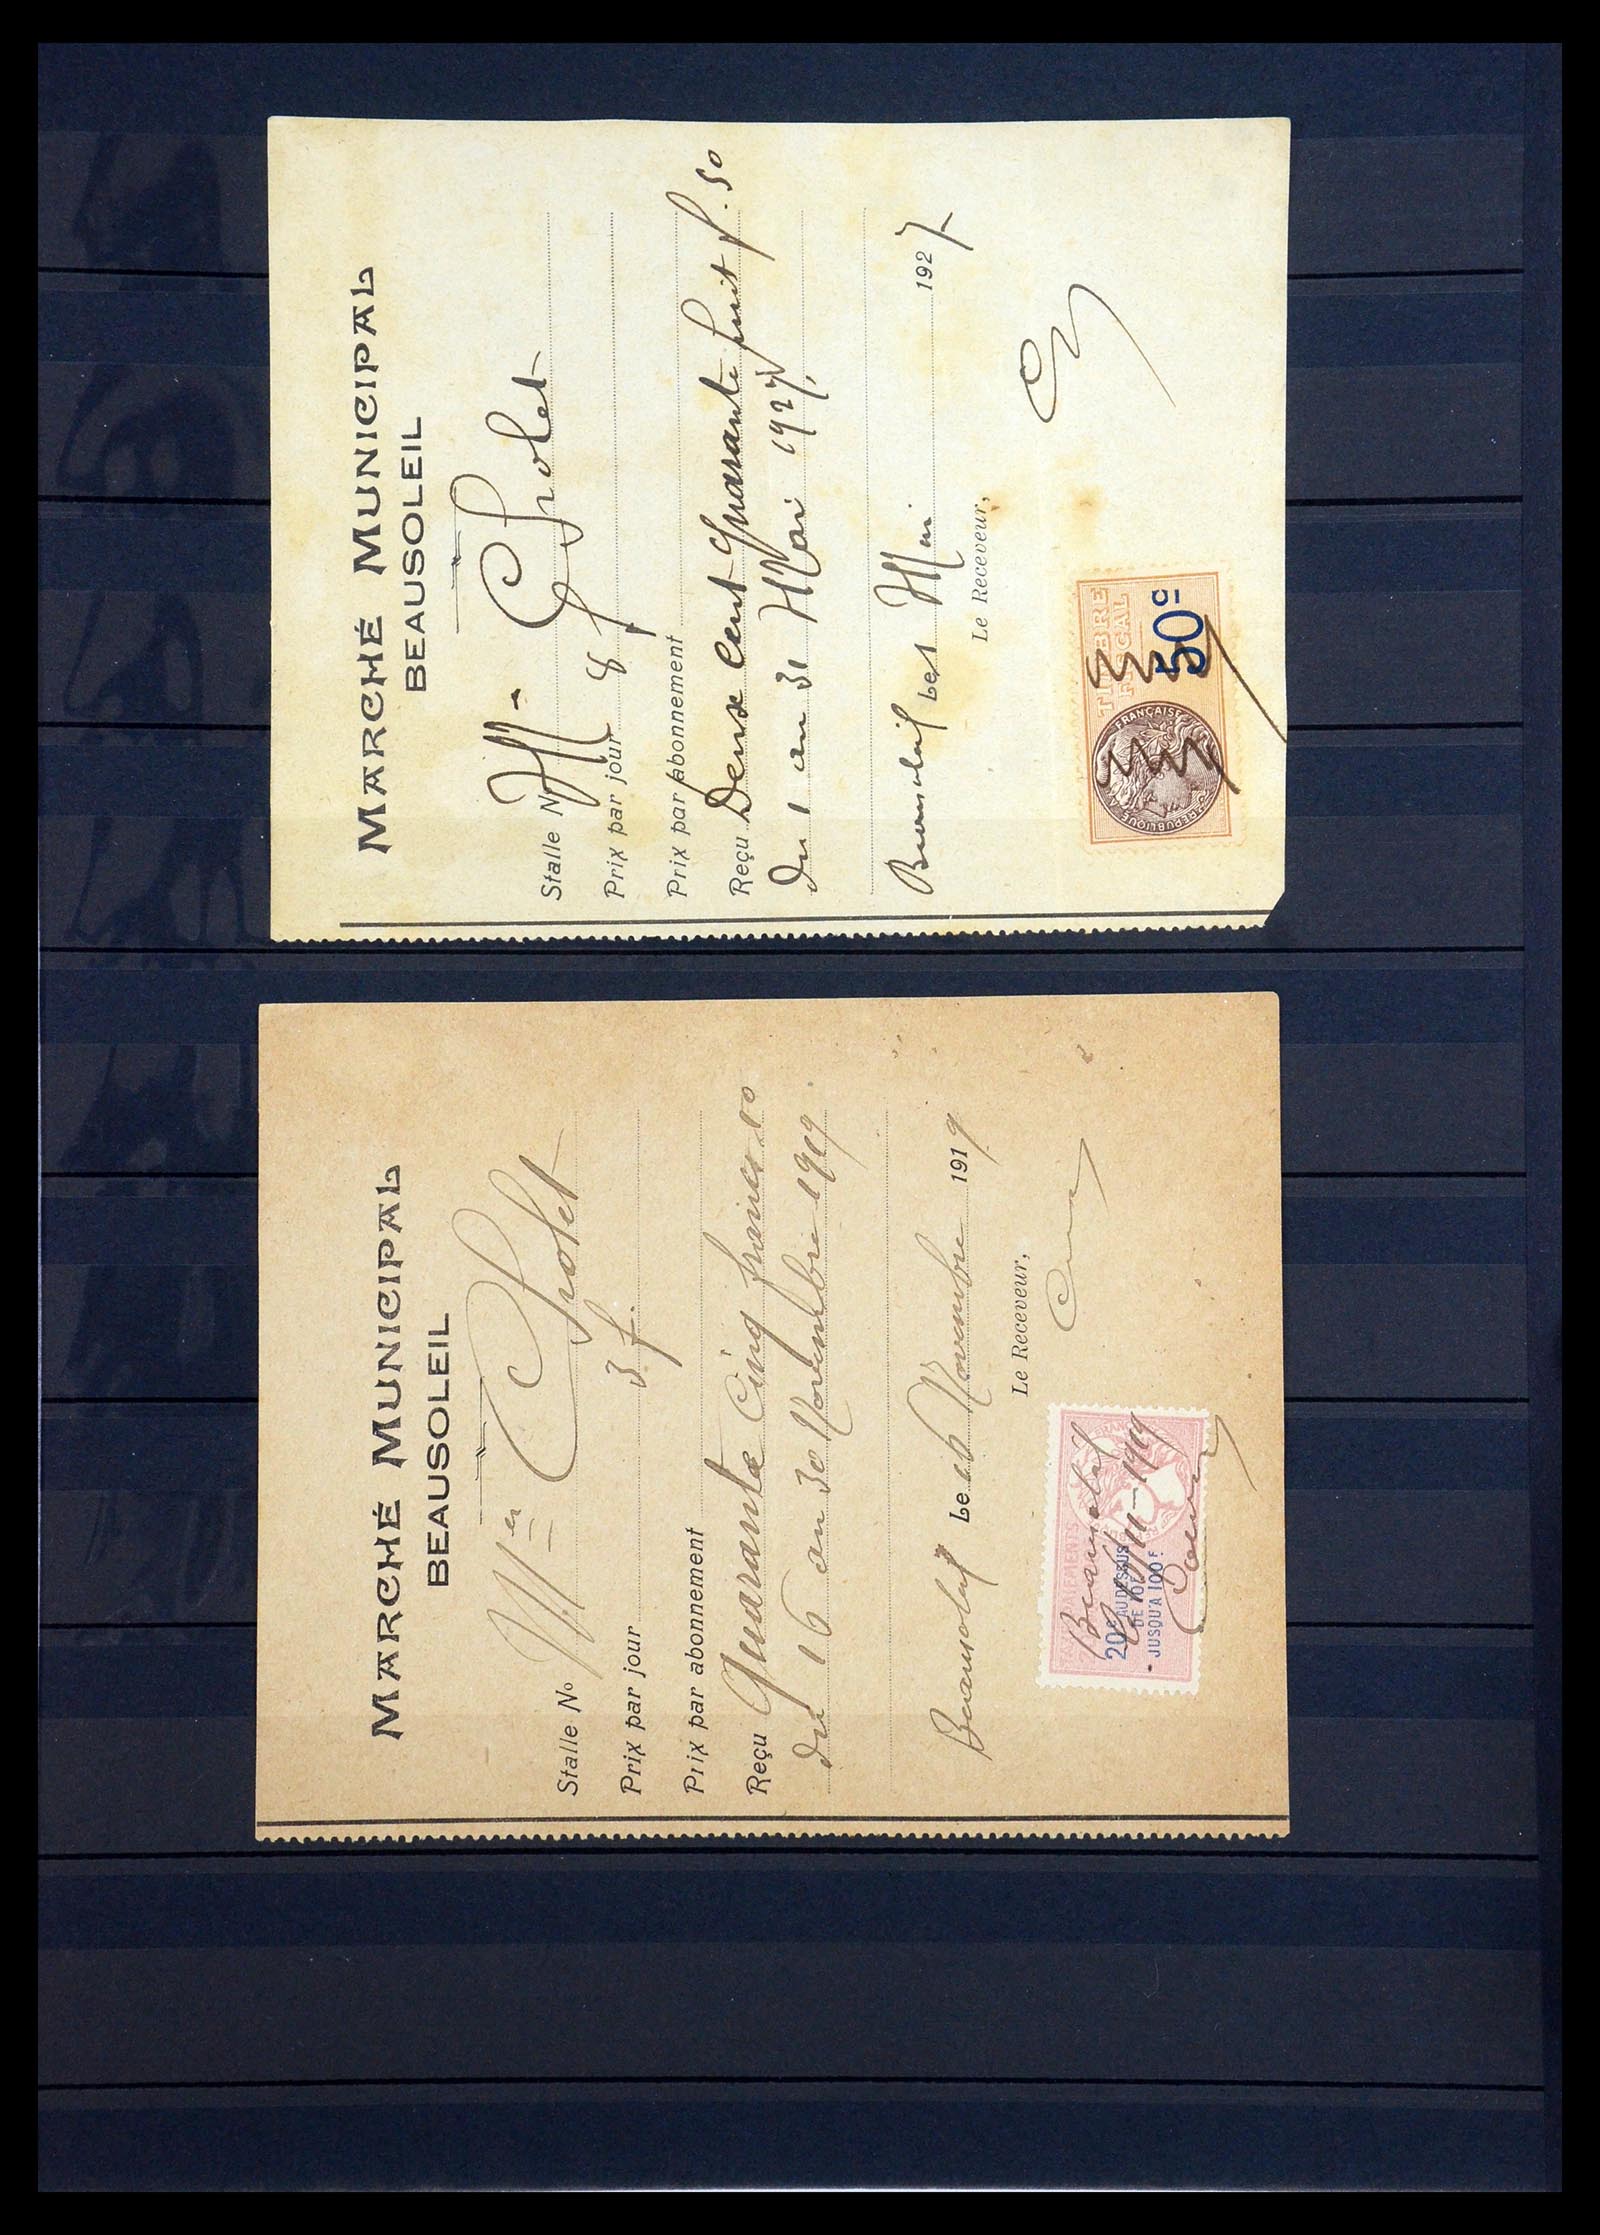 MARCHÉ MUNICIPAL
BEAUSOLEIL
Stalle No M. Cholet
Prix par jour 8 f
Prix par abonnement
Reçu Deux Cent Quarante huit f. 50
du 1 au 31 Mai 1927
Beausoleil Le 1 Mai 1927
Le Receveur,
TIMBRE
FISCAL
50c
RÉPUBLIQUE FRANÇAISE
MARCHÉ MUNICIPAL
BEAUSOLEIL
Stalle No Cholet
Prix par jour 3 f.
Prix par abonnement
Reçu Quarante Cinq francs 10
du 16 au 30 Novembre 1919
Beausoleil Le 16 Novembre 1919
Le Receveur,
PAIEMENTS
20c AU DESSUS
DE 10F
JUSQU'A 100F
Beausoleil
11-1919